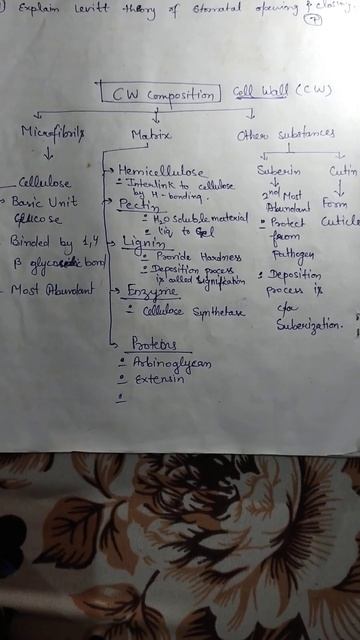 Explain Levitt theory of stomatal opening & closing.
7
CW Composition
Cell Wall (CW)
Microfibrils
Matrix
Other substances
Cellulose
Basic Unit
Glucose
Binded by 1,4
β glycosidic bond
Most Abundant
Hemicellulose
Interlink to cellulose
by H-bonding.
Pectin
H2O soluble material
liq to Gel
Lignin
Provide Hardness
Deposition process
is called
Enzyme
Cellulose Synthetase
Proteins
Arbinoglycan
Extensin
Suberin
2nd Most
Abundant
Protect
from
pathogen
Deposition
process is
c/a
Suberization.
Cutin
Form
Cuticle